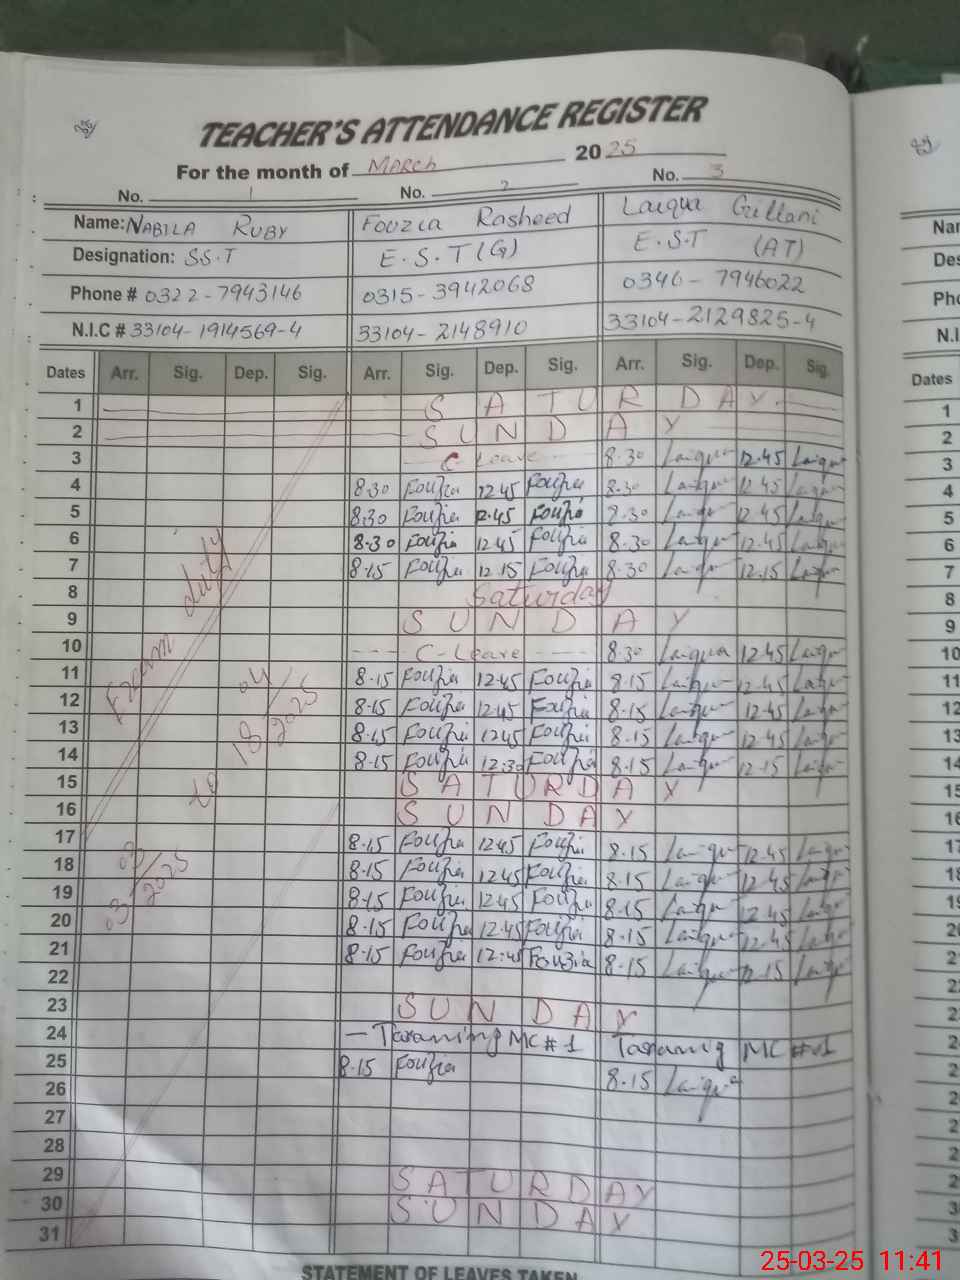 TEACHER'S ATTENDANCE REGISTER
For the month of March 2025
No. 1 No. 2 No. 3
Name: NABILA RUBY Fouzia Rasheed Laiqua Gillani
Designation: SS.T E.S.T (G) E.S.T (AT)
Phone # 0322-7943146 0315-3942068 0346-7946022
N.I.C # 33104-1914569-4 33104-2148910 33104-2129825-4
Dates Arr. Sig. Dep. Sig. Arr. Sig. Dep. Sig. Arr. Sig. Dep. Sig.
1 SATURDAY
2 SUNDAY
3 C-Leave 8.30 Laiqua 12.45 Laiqua
4 8.30 Fouzia 12.45 Fouzia 8.30 Laiqua 12.45 Laiqua
5 8.30 Fouzia 12.45 Fouzia 8.30 Laiqua 12.45 Laiqua
6 8.30 Fouzia 12.45 Fouzia 8.30 Laiqua 12.45 Laiqua
7 8.15 Fouzia 12.15 Fouzia 8.30 Laiqua 12.15 Laiqua
8 Saturday
9 SUNDAY
10 C-Leave 8.30 Laiqua 12.45 Laiqua
11 8.15 Fouzia 12.45 Fouzia 8.15 Laiqua 12.45 Laiqua
12 8.15 Fouzia 12.45 Fouzia 8.15 Laiqua 12.45 Laiqua
13 8.15 Fouzia 12.45 Fouzia 8.15 Laiqua 12.45 Laiqua
14 8.15 Fouzia 12:30 Fouzia 8.15 Laiqua 12.15 Laiqua
15 SATURDAY
16 SUNDAY
17 8.15 Fouzia 12.45 Fouzia 8.15 Laiqua 12.45 Laiqua
18 8.15 Fouzia 12.45 Fouzia 8.15 Laiqua 12.45 Laiqua
19 8.15 Fouzia 12.45 Fouzia 8.15 Laiqua 12.45 Laiqua
20 8.15 Fouzia 12.45 Fouzia 8.15 Laiqua 12.45 Laiqua
21 8.15 Fouzia 12:45 Fouzia 8.15 Laiqua 12.15 Laiqua
22
23 SUNDAY
24 MC #1 MC #1
25 8.15 Fouzia 8.15 Laiqua
26
27
28
29 SATURDAY
30 SUNDAY
31
Exam duty
03/03/2025 to 18/04/2025
STATEMENT OF LEAVES TAKEN
Dates
1
2
3
4
5
6
7
8
9
10
11
12
13
14
15
25-03-25 11:41